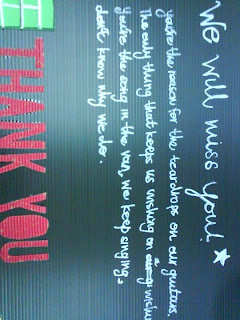 We will miss you!!
you're the reason for the teardrops on our guitars,
The only thing that keeps us wishing on a
You're the song in the van, we keep singing,
don't know why we do.
THANK YOU